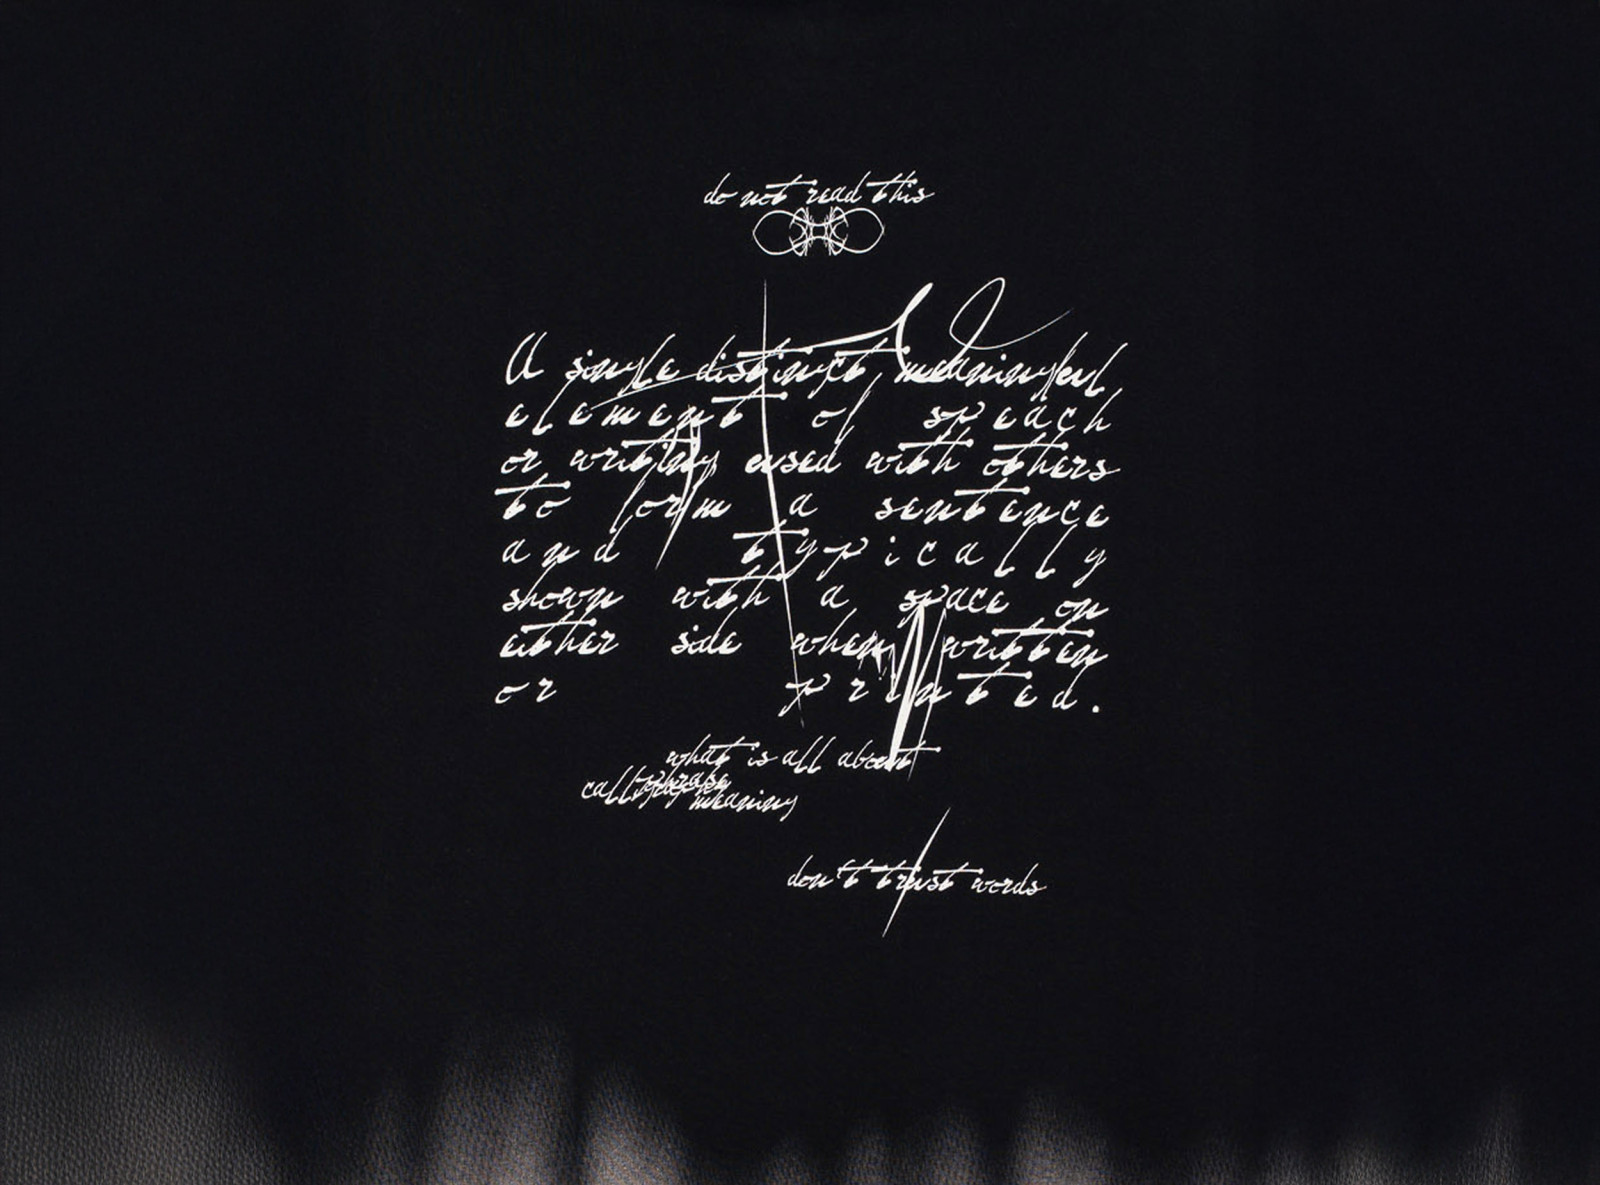 do not read this
A single distinct meaningful
element of speach
or writing used with others
to form a sentence
and typically
shown with a space on
either side when written
or printed.
what is all about
calligraphy
phrase
meaning
don't trust words